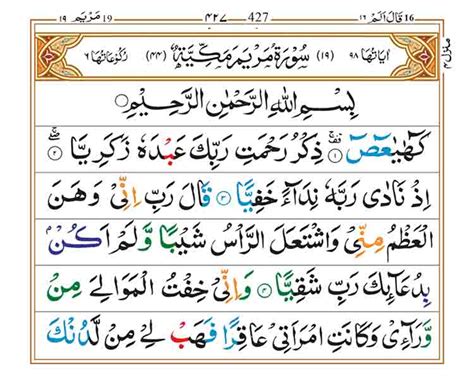 19 مَرْيَم ١٩ ٤٢٧ 427 16 قَالَ اَلَمْ ١٦
اٰيَاتُهَا ٩٨ (١٩) سُوْرَةُ مَرْيَمَ مَكِّيَّةٌ (٤٤) رُكُوْعَاتُهَا ٦
منزل ٤
بِسْمِ اللّٰهِ الرَّحْمٰنِ الرَّحِيْمِ
كٓهٰيٰعٓصٓ ۚ ١ ذِكْرُ رَحْمَتِ رَبِّكَ عَبْدَهٗ زَكَرِيَّا ۖ ٢
اِذْ نَادٰى رَبَّهٗ نِدَآءً خَفِيًّا ٣ قَالَ رَبِّ اِنِّىْ وَهَنَ
الْعَظْمُ مِنِّىْ وَاشْتَعَلَ الرَّاْسُ شَيْبًا وَّلَمْ اَكُنْۢ
بِدُعَآئِكَ رَبِّ شَقِيًّا ٤ وَاِنِّىْ خِفْتُ الْمَوَالِىَ مِنْ
وَّرَآءِىْ وَكَانَتِ امْرَاَتِىْ عَاقِرًا فَهَبْ لِىْ مِنْ لَّدُنْكَ